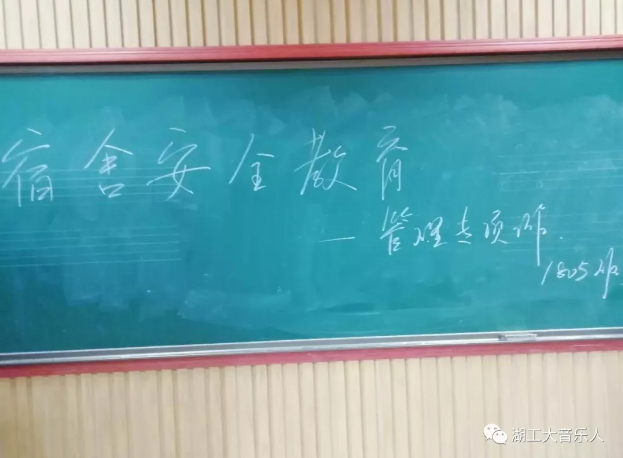 宿舍安全教育
—管理专项师.
1805班
湖工大音乐人